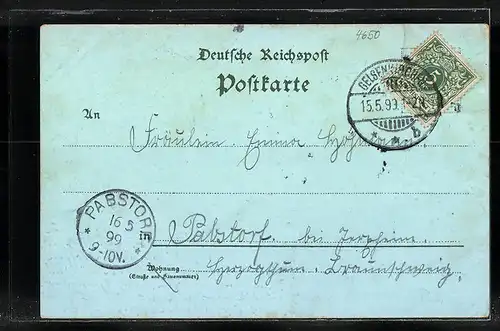 4650
Deutsche Reichspost
Postkarte
GELSENKIRCHEN
15.5.99.
b
5
An
Fräulein Emma
PABSTORF
16 5
99
9-10V.
in Pabstorf bei Jerxheim
Wohnung
(Straße und Hausnummer)
Herzogthum Braunschweig